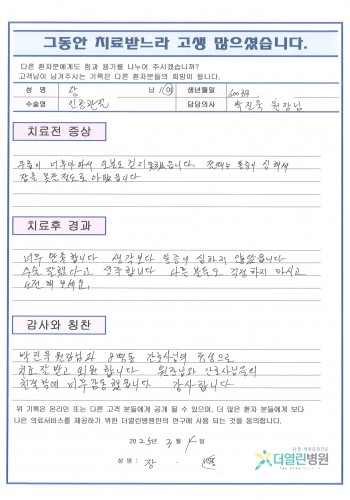 그동안 치료받느라 고생 많으셨습니다.
다른 환자분에게도 힘과 용기를 나누어 주시겠습니까?
고객님이 남겨주시는 기록은 다른 환자분들의 희망이 됩니다.
성 명 장 남 / 여 생년월일
수술명 인공관절 담당의사 박진욱 원장님
치료전 증상
무릎이 너무 아파서 오보도 걷지 못했습니다. 통증이 심해서
잠을 못잘정도로 아팠습니다
치료후 경과
너무 만족합니다 생각보다 통증이 심하지 않았습니다
수술 잘했다고 생각합니다 다른 분들도 걱정하지 마시고
도전 해 보세요.
감사와 칭찬
박진욱 원장님과 8병동 간호사님의 정성으로
치료 잘 받고 퇴원 합니다 원장님과 간호사님들의
친절함에 너무 감동했읍니다 감사합니다
위 기록은 온라인 또는 다른 고객 분들에게 공개 될 수 있으며, 더 많은 환자 분들에게 보다
나은 의료서비스를 제공하기 위한 더열린병원만의 연구에 사용 되는 것을 동의합니다.
2025년 3월 4일
성 명 : 장
더열린병원
THE OPEN HOSPITAL